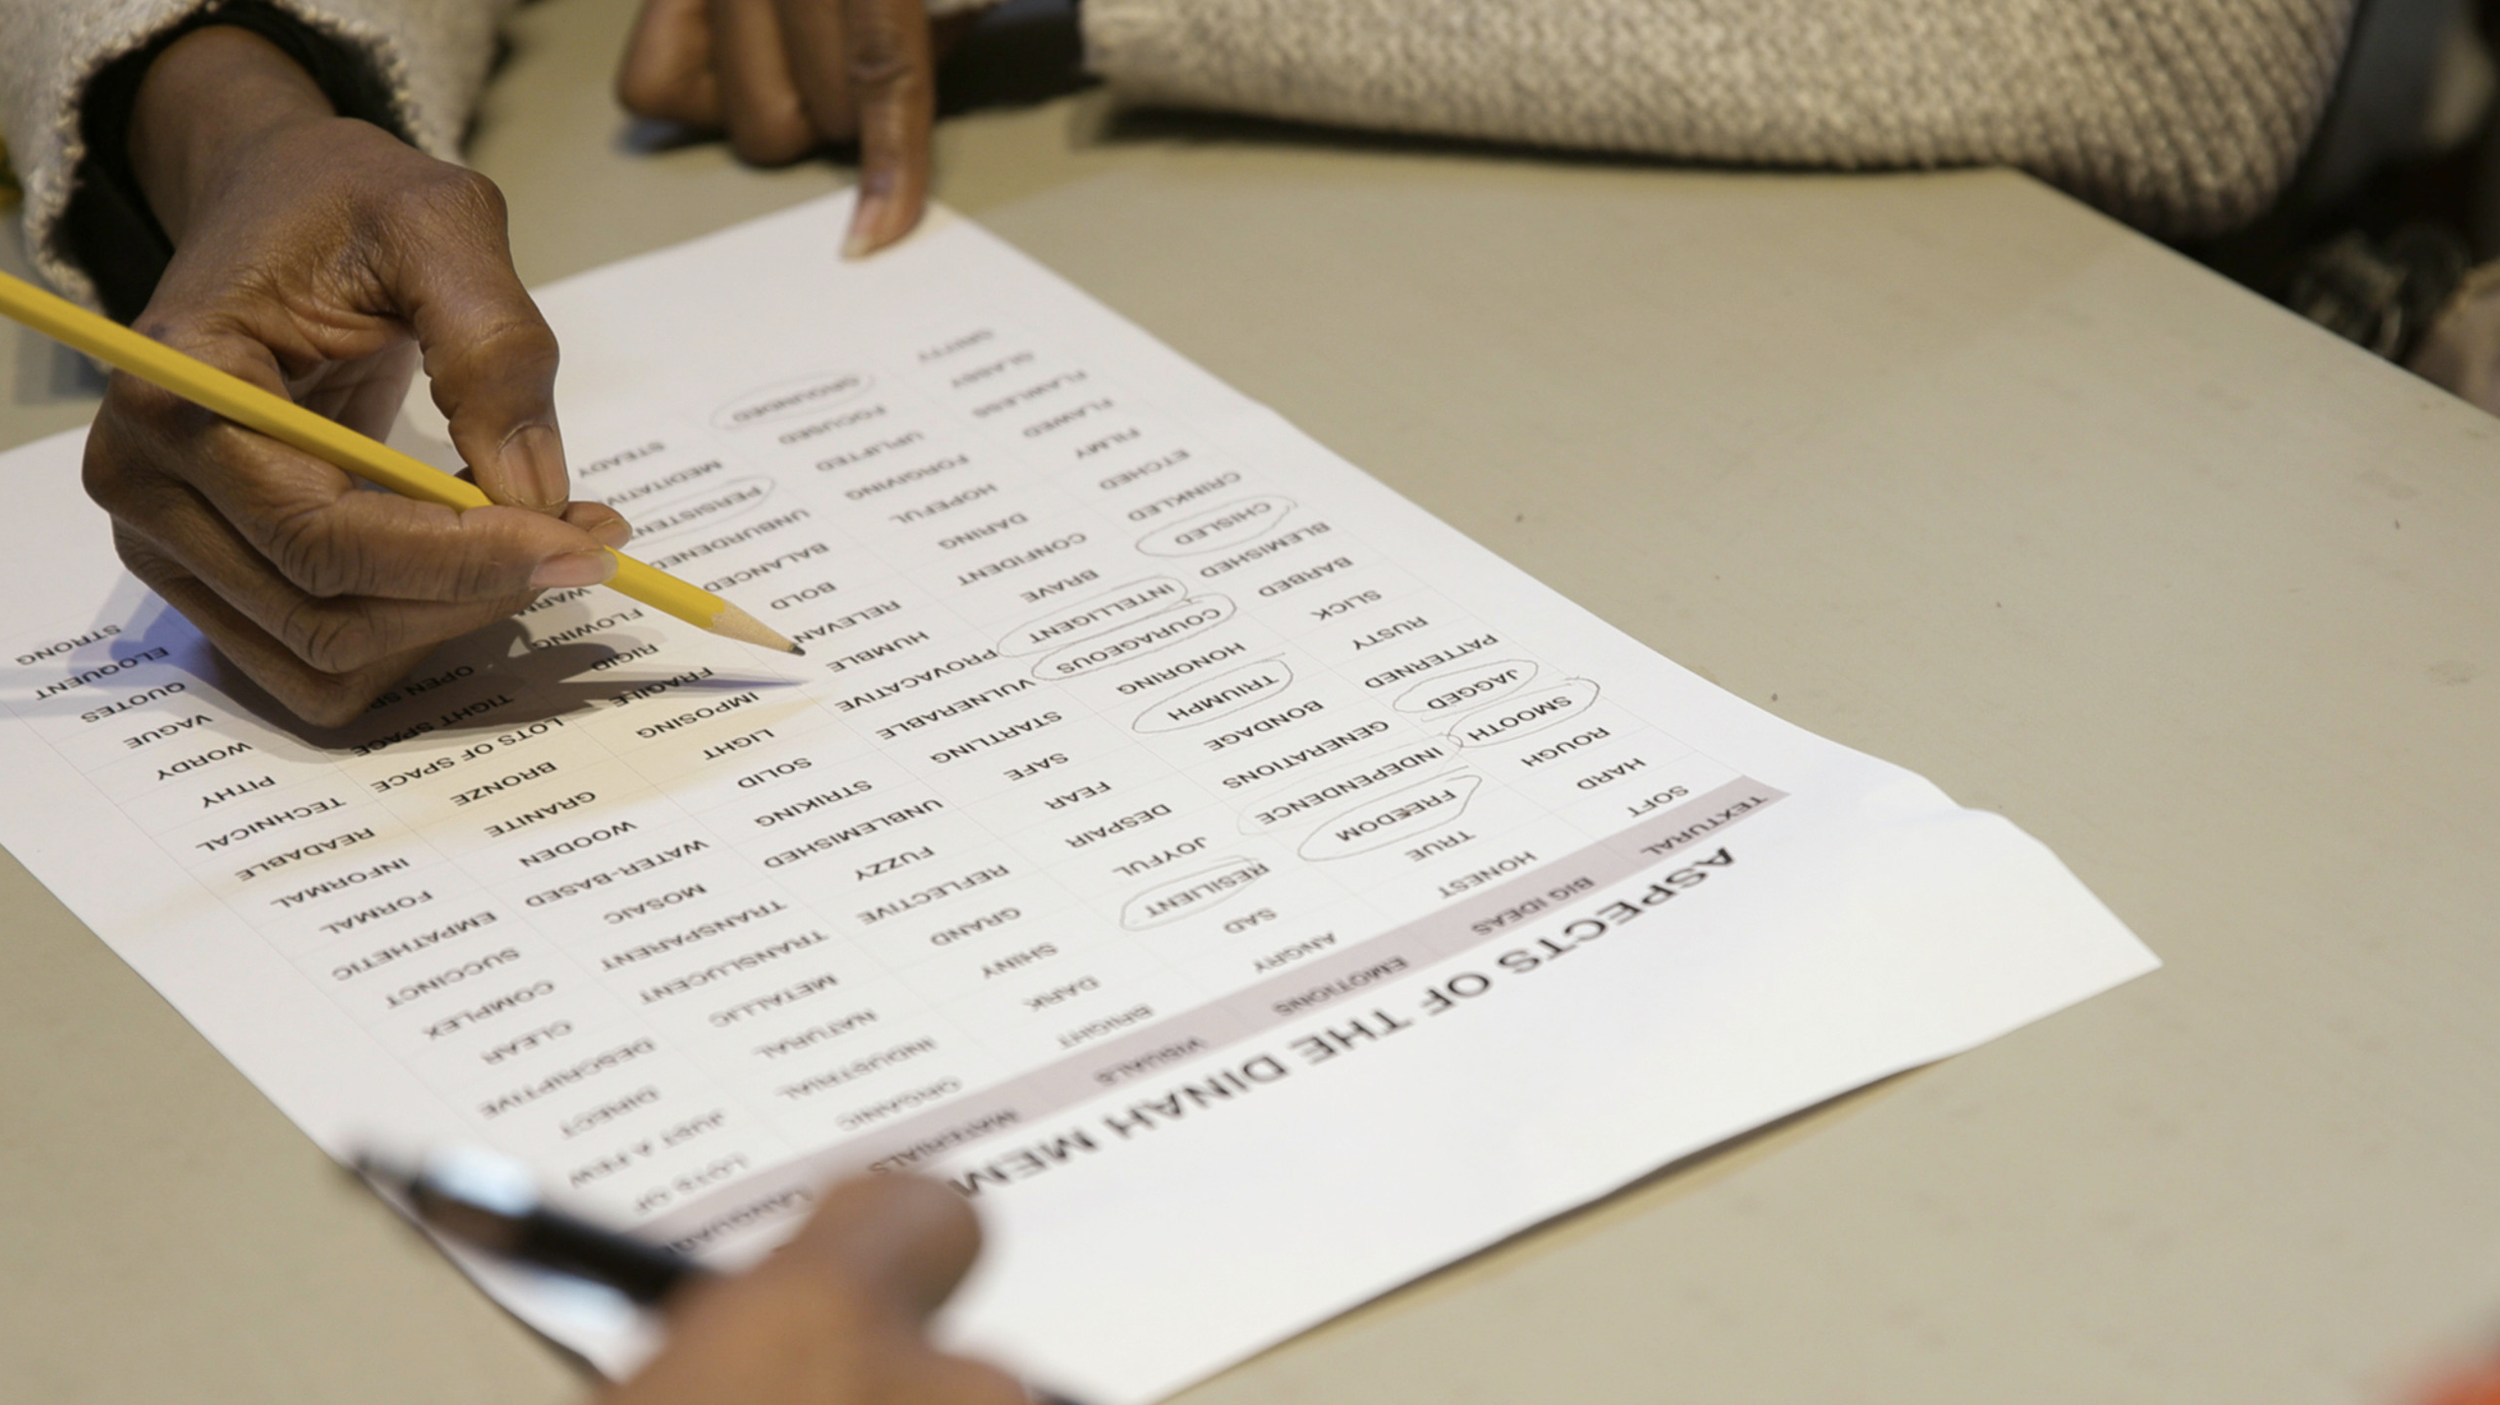 ASPECTS OF THE DINAH MEM
TEXTURAL BIG IDEAS EMOTIONS VISUALS MATERIALS LANGUAGE
SOFT HONEST ANGRY BRIGHT ORGANIC LOTS OF
HARD TRUE SAD DARK INDUSTRIAL JUST A FEW
ROUGH FREEDOM RESILIENT SHINY NATURAL DIRECT
SMOOTH INDEPENDENCE JOYFUL GRAND METALLIC DESCRIPTIVE
JAGGED GENERATIONS DESPAIR REFLECTIVE TRANSLUCENT CLEAR
PATTERNED BONDAGE FEAR FUZZY TRANSPARENT COMPLEX
RUSTY TRIUMPH SAFE UNBLEMISHED MOSAIC SUCCINCT
SLICK HONORING STARTLING STRIKING WATER-BASED EMPATHETIC
BARBED COURAGEOUS VULNERABLE SOLID WOODEN FORMAL
BLEMISHED INTELLIGENT PROVACATIVE LIGHT GRANITE INFORMAL
CHISLED BRAVE HUMBLE IMPOSING BRONZE READABLE
CRINKLED CONFIDENT RELEVANT FRAGILE LOTS OF SPACE TECHNICAL
ETCHED DARING BOLD RIGID TIGHT SPACE PITHY
FILMY HOPEFUL BALANCED FLOWING OPEN WORDY
FLAWED FORGIVING UNBURDENED WARM VAGUE
FLAWLESS UPLIFTED PERSISTENT QUOTES
GLASSY FOCUSED MEDITATIVE ELOQUENT
GRITTY GROUNDED STEADY STRONG